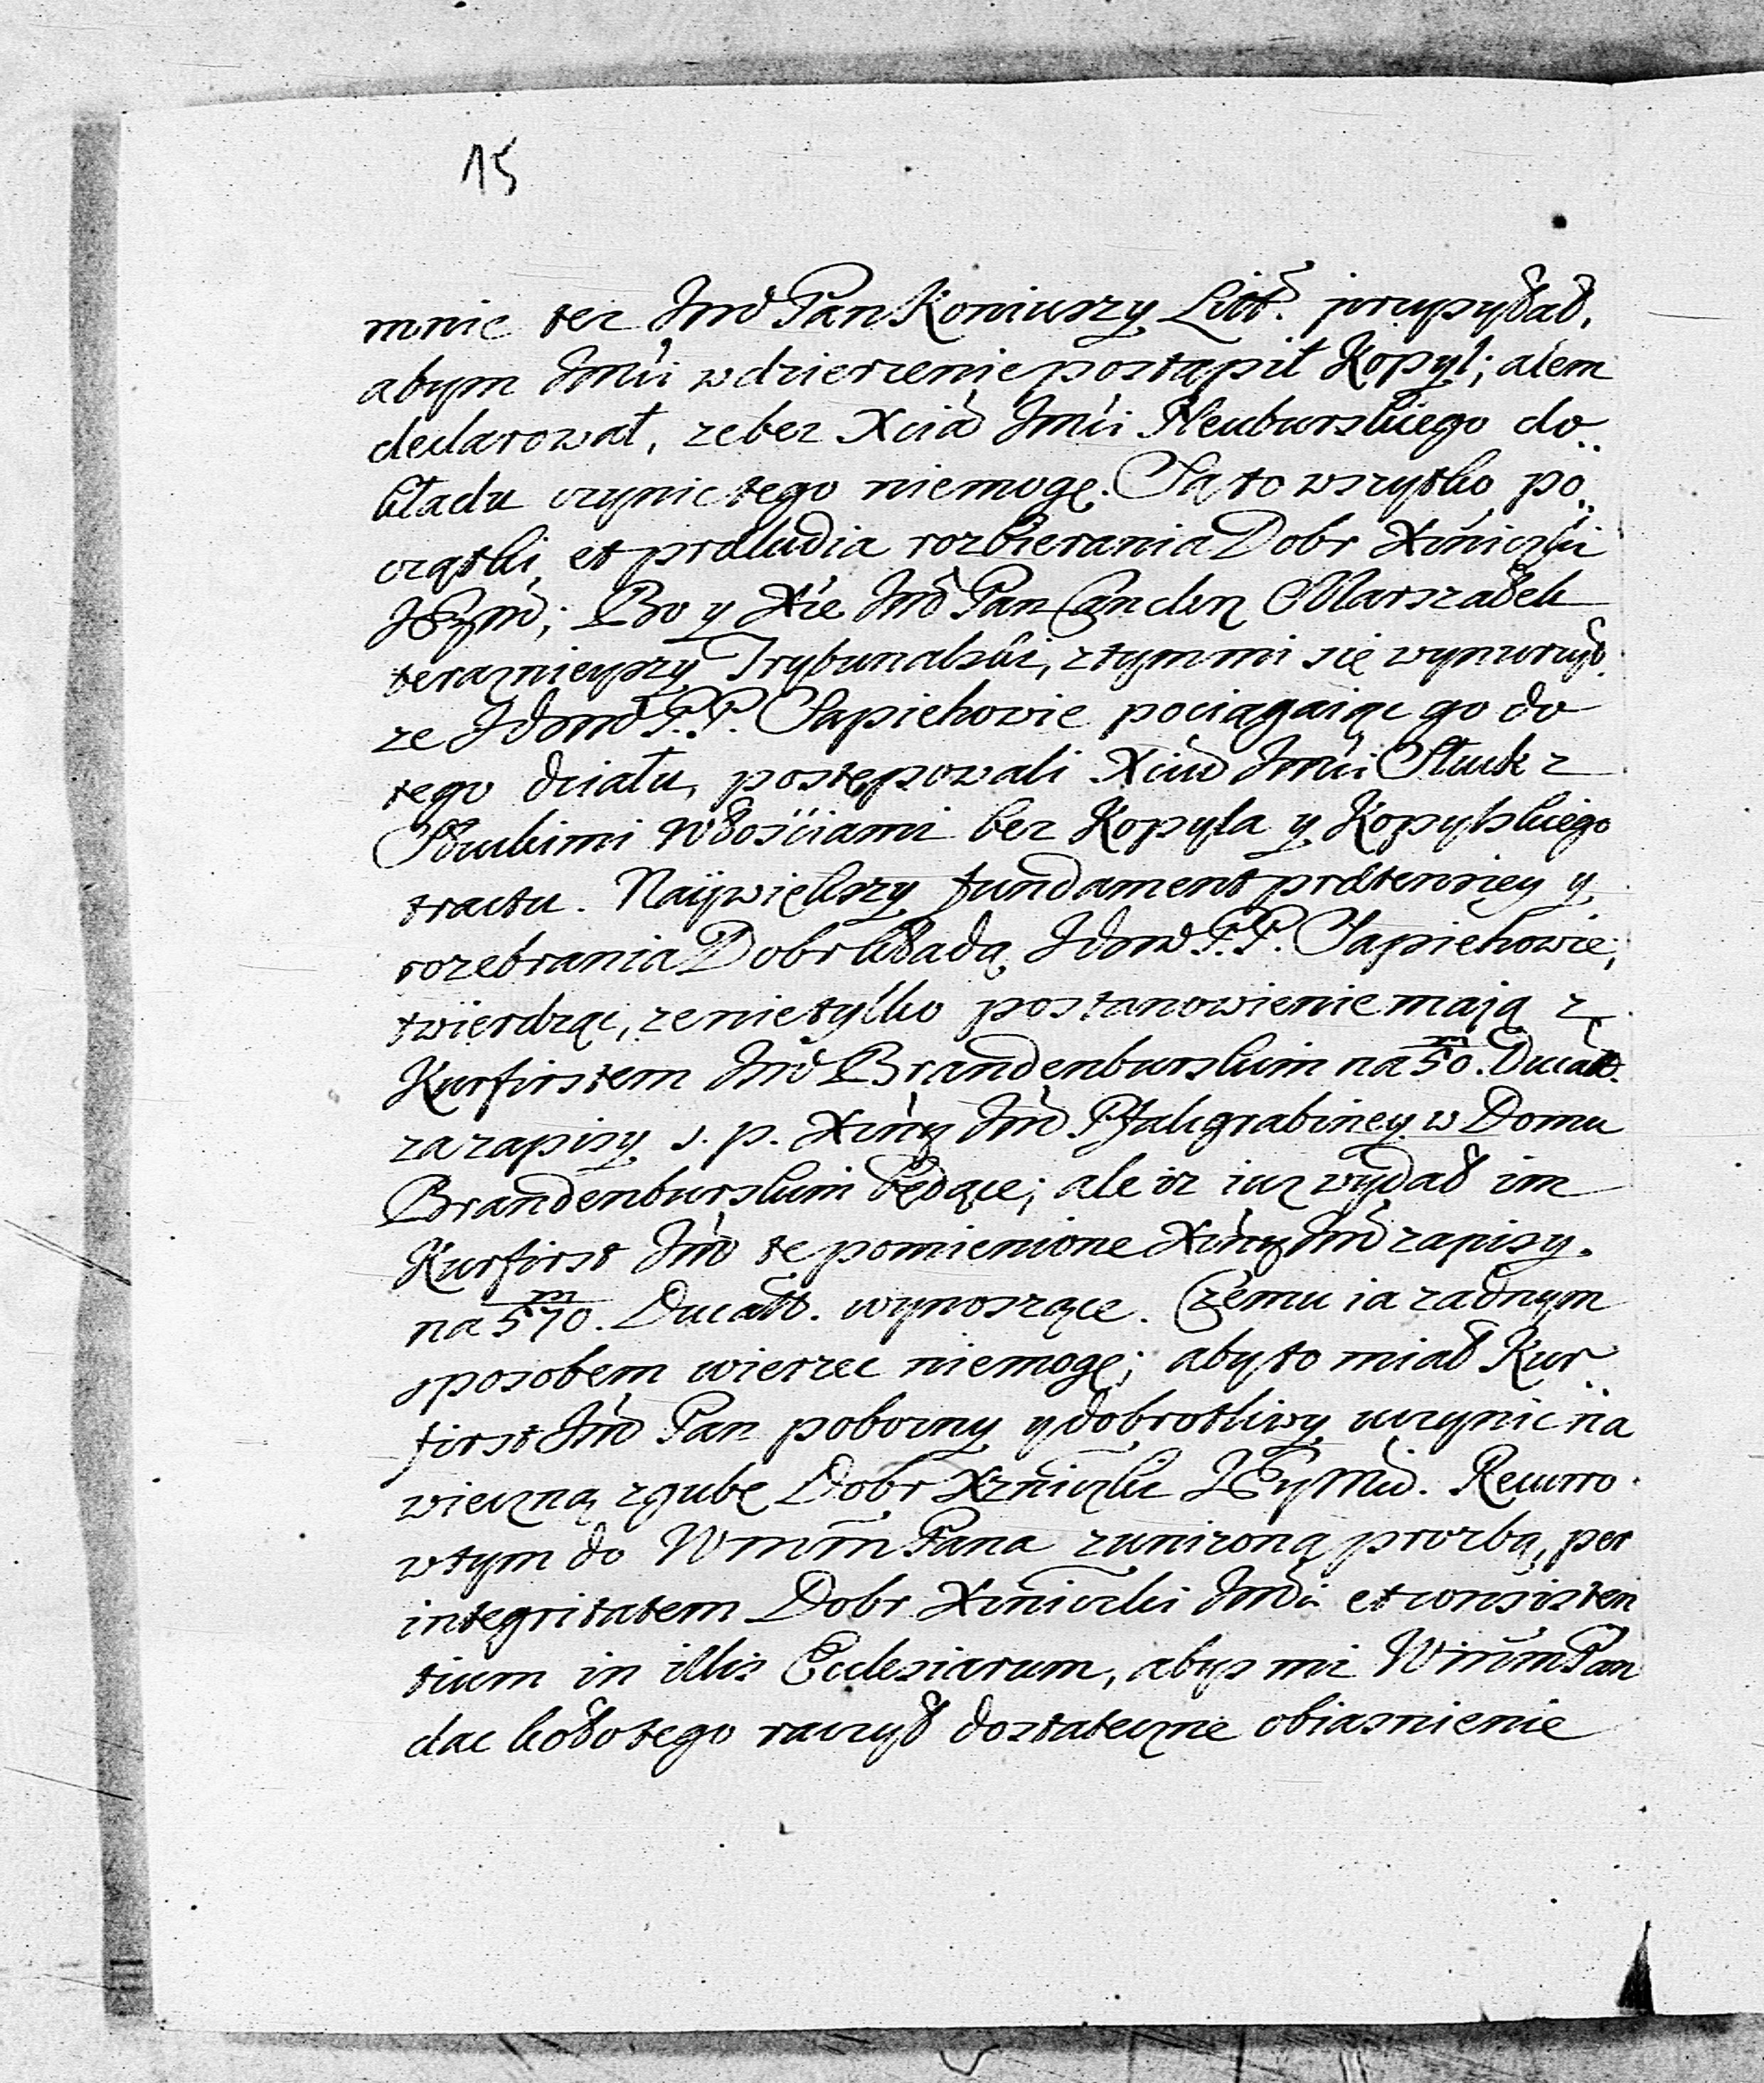 15
mnie tez Jmć Pan Koniuszy Litt. przysyłał,
abym Jmći w dzierzenie postąpił Kopyl; alem
declarował, ze bez Xcia Jmći Neuburskiego do
kładu czynic tego niemogę. Są to wszytko po
czątki et præludia rozbierania Dobr Xiniczki
JEymć; Bo y Xże Jmć Pan Canclerz Marszałek
teraznieyszy Trybunalski, z tym mi się wynurzył.
ze Ichmć P.P. Sapiehowie pociągaiąc go do
tego działu, postępowali Xciu Jmći Słuck z
Słuckimi Włościami bez Kopyla y Kopylskiego
tractu. Naÿwiększy fundament prætensiey y
rozebrania Dobr kładą Ichmć P.P. Sapiehowie,
twierdząc, ze nie tylko postanowienie mają z
Kurfirstem Jmć Brandenburskim na 50/m. Ducatt.
za zapisy s. p. Xiężny Jmć Pfalcgrabiney w Domu
Brandenburskim będące; ale iz iuz wydał im
Kurfirst Jmć te pomienione Xiężny Jmć zapisy.
na 570/m. Ducatt. wynoszące. Czemu ia zadnym
sposobem wierzec niemogę; aby to miał Kur
first Jmć Pan pobozny y dobrotliwy uczynic na
wieczną zgubę Dobr Xzniczki JEyMci. Recurro
w tym do WmmPana z unizoną prozbą, per
integritatem Dobr Xiniczki Jmći et consisten
tium in illis Ecclesiarum, abys mi WmmPan
dac koło tego raczył dostateczne obiasnienie